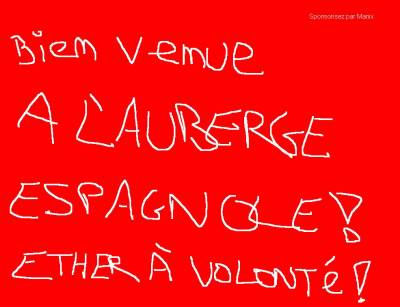 Sponsorisez par Manix
Biem vemue
A L'AUBERGE
ESPAGNOLE!
ETHER À VOLONTÉ!